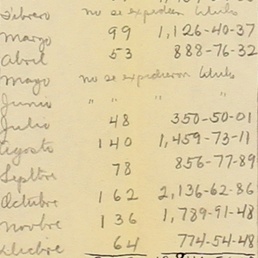 Febrero no se expiden títulos
Marzo 99 1,126-40-37
Abril 53 888-76-32
Mayo no se expidieron títulos
Junio " " "
Julio 48 350-50-01
Agosto 140 1,459-73-11
Septbre 78 856-77-89
Octubre 162 2,136-62-86
Novbre 136 1,789-91-48
Dicbre 64 774-54-48